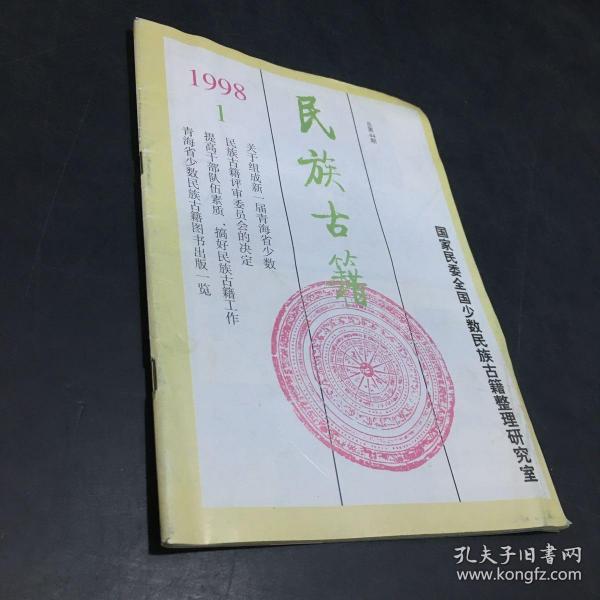 1998
1
民族古籍
总第44期
关于组成新一届青海省少数
民族古籍评审委员会的决定
提高干部队伍素质，搞好民族古籍工作
青海省少数民族古籍图书出版一览
国家民委全国少数民族古籍整理研究室
孔夫子旧书网
www.kongfz.com